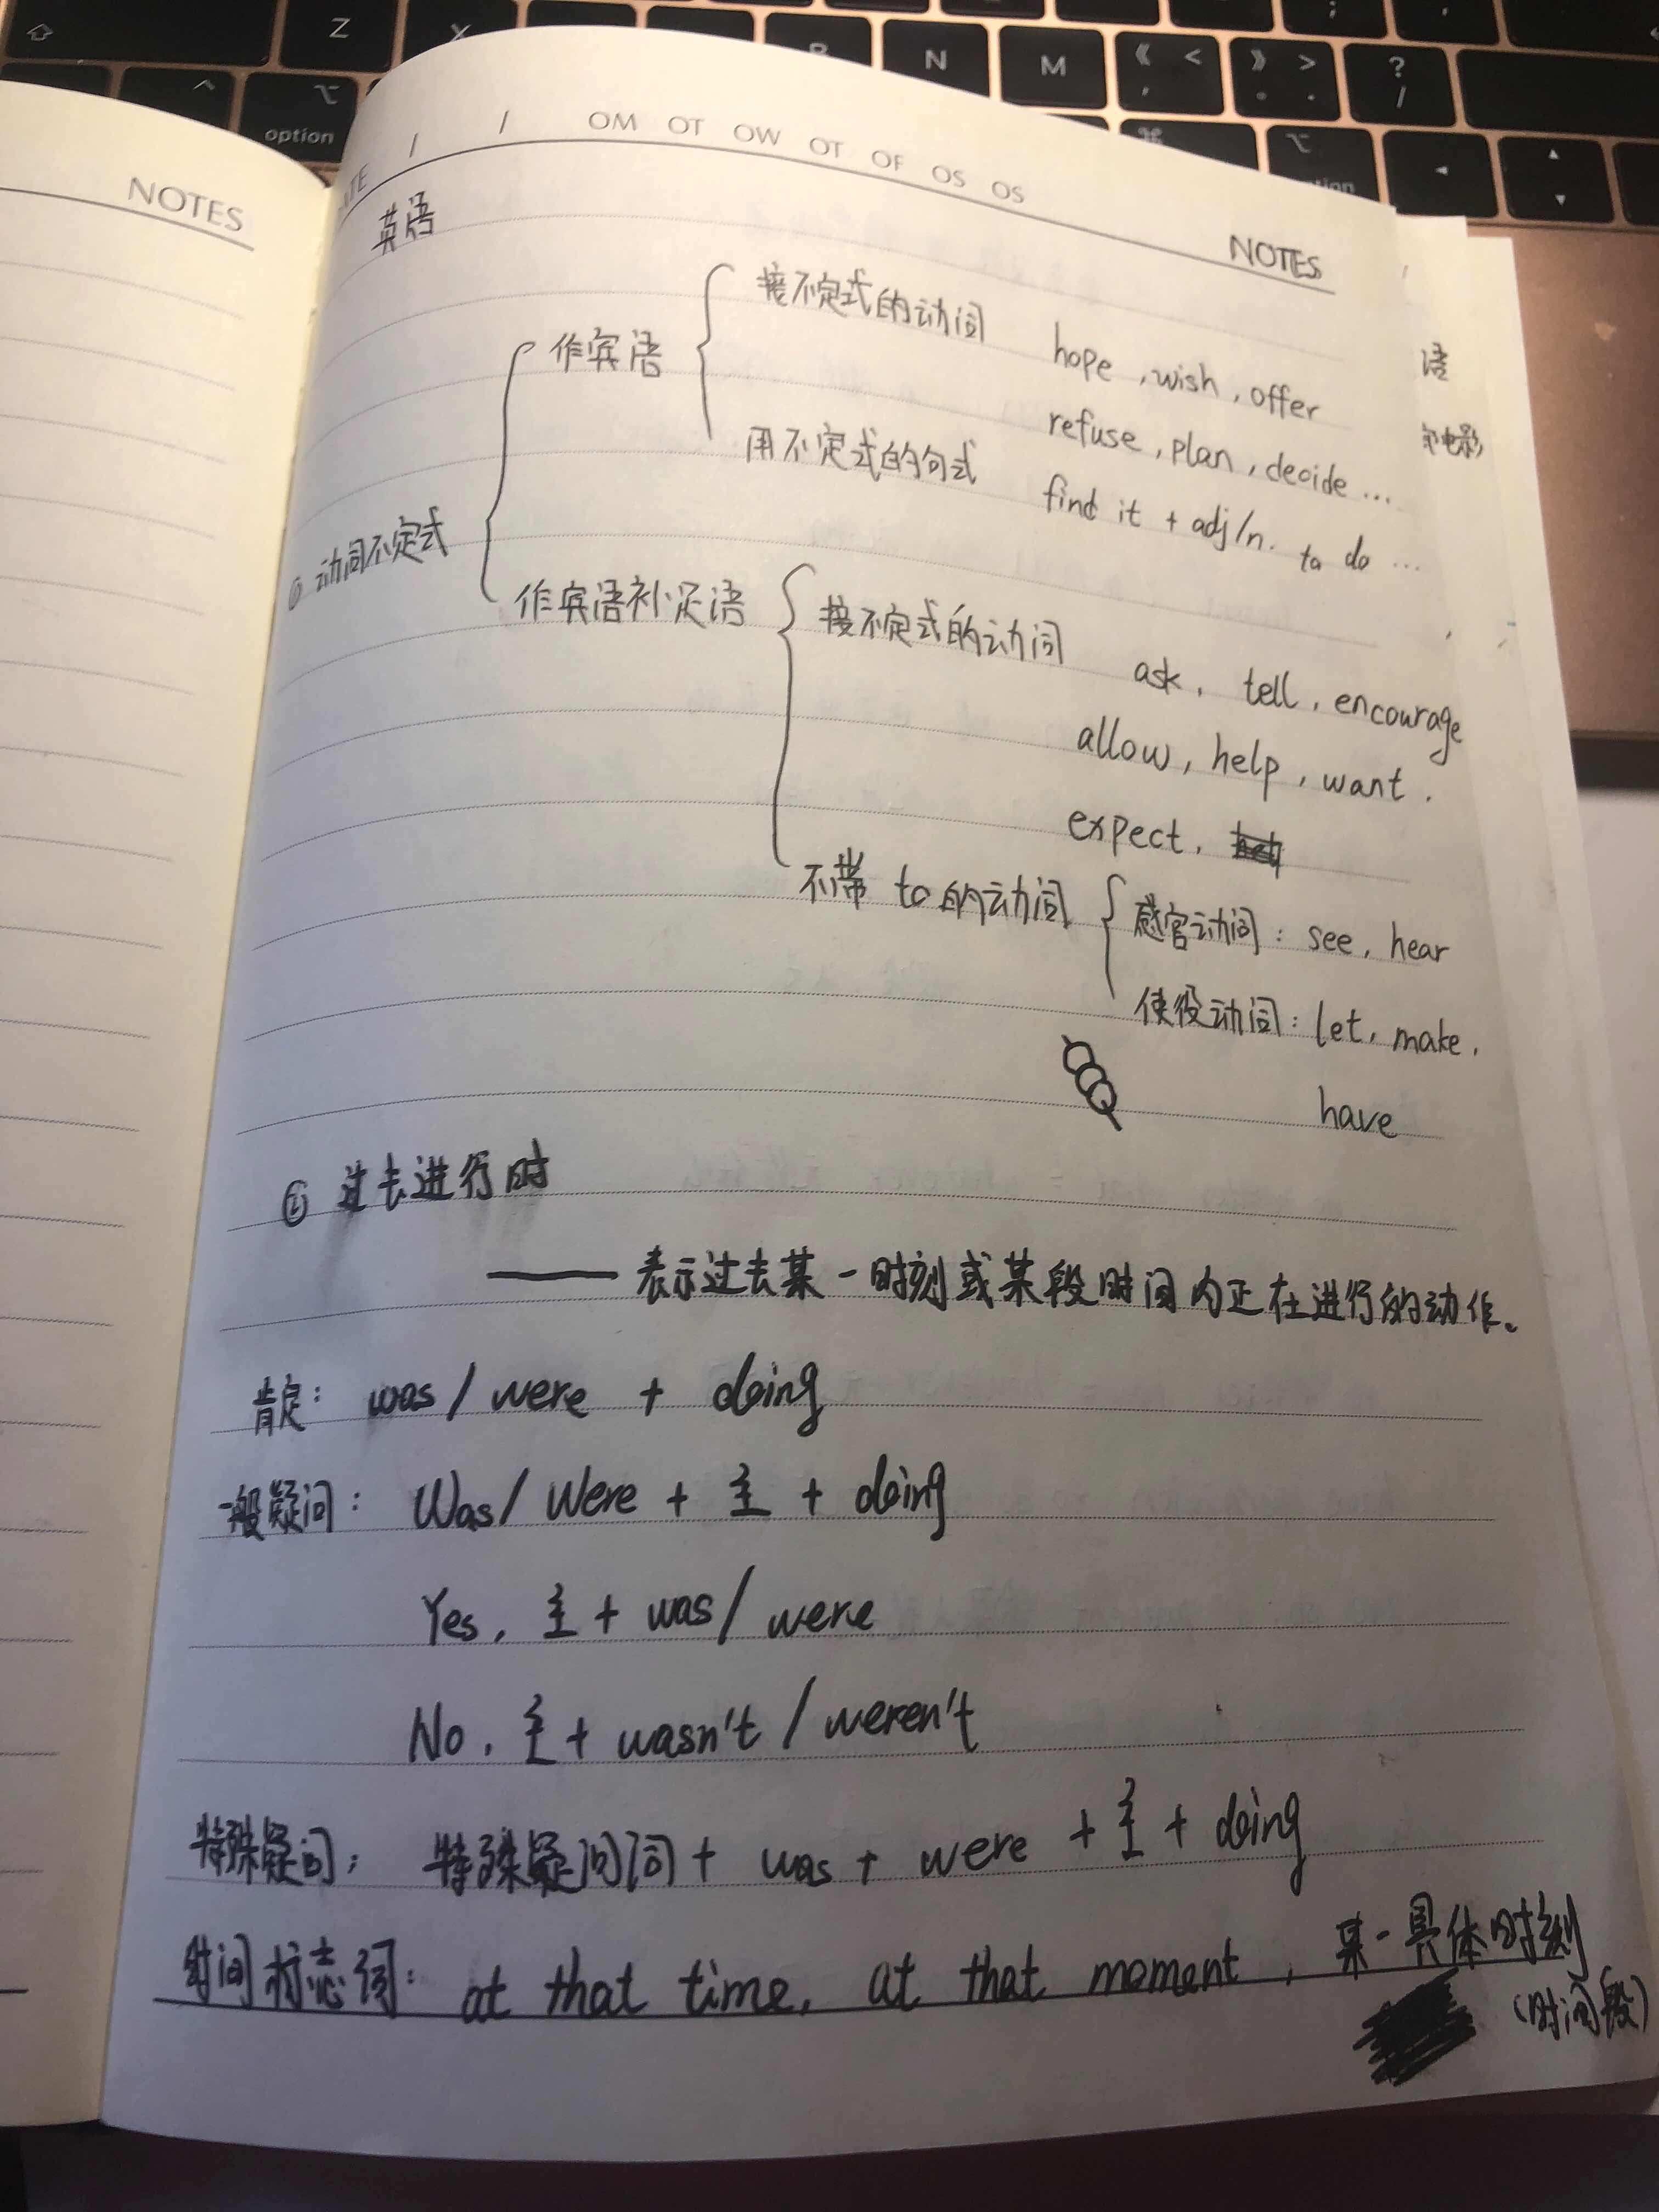 Z
N
M
《 <
,
》 >
.
?
/
option
NOTES
/ / OM OT OW OT OF OS OS
NOTES
英语
① 动词不定式
作宾语
接不定式的动词 hope, wish, offer
refuse, plan, decide ...
用不定式的句式 find it + adj/n. to do ...
作宾语补足语
接不定式的动词 ask, tell, encourage
allow, help, want.
expect,
不带 to 的动词
感官动词: see, hear
使役动词: let, make,
have
语
电影
② 过去进行时
—— 表示过去某一时刻或某段时间内正在进行的动作。
肯定: was / were + doing
一般疑问: Was / Were + 主 + doing
Yes, 主 + was / were
No, 主 + wasn't / weren't
特殊疑问: 特殊疑问词 + was + were + 主 + doing
时间标志词: at that time, at that moment, 某一具体时刻
(时间段)